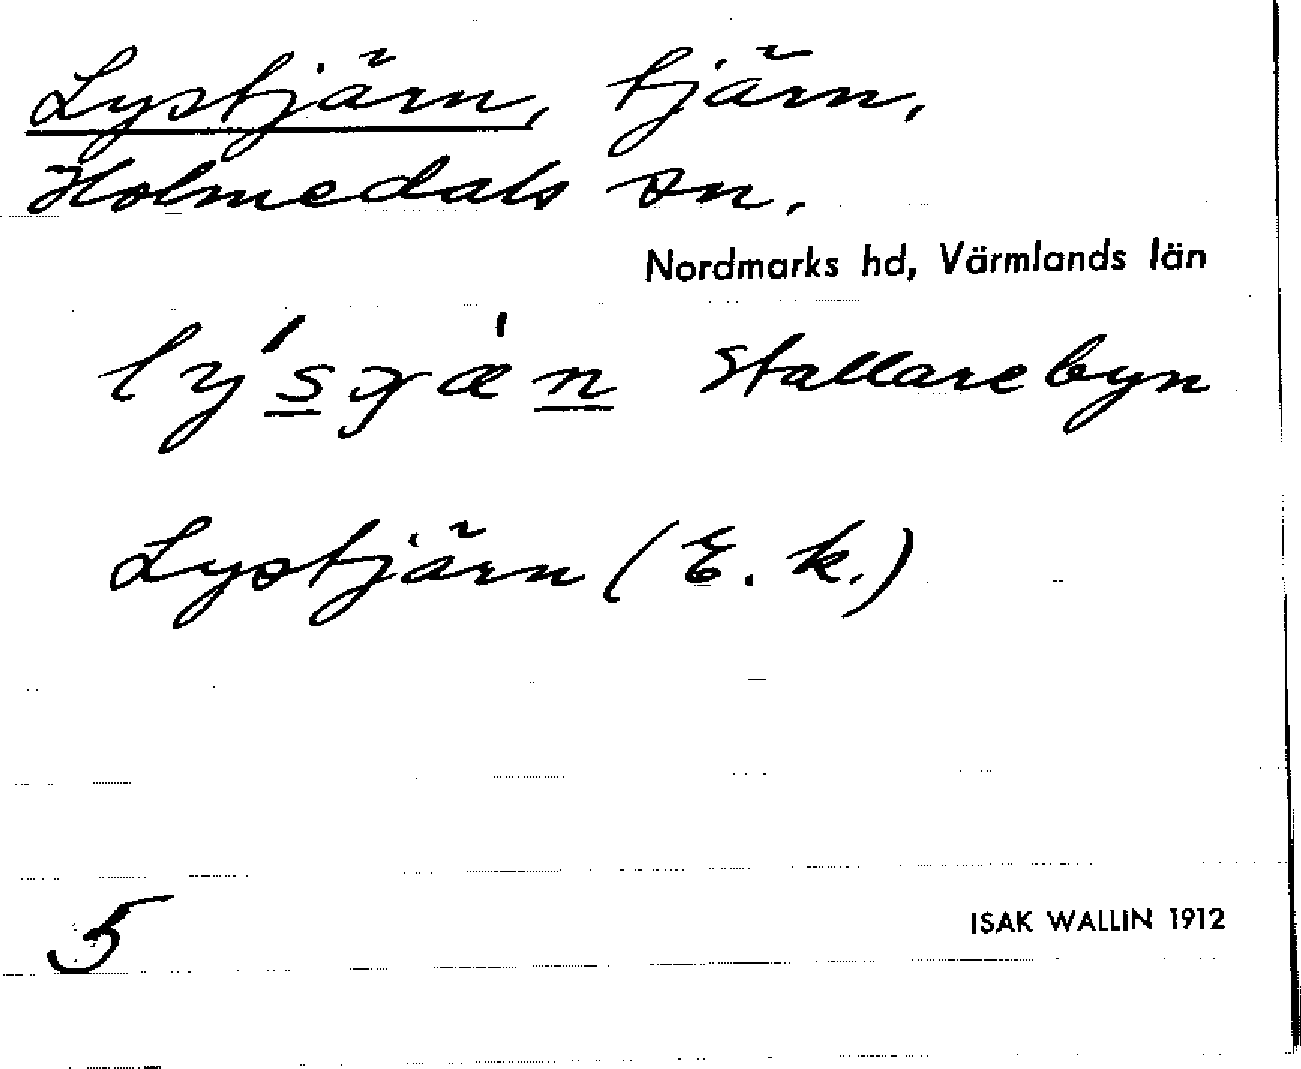 Lystjärn, tjärn,
Holmedals sn.
Nordmarks hd, Värmlands län
Stallarebyn
Lystjärn (E. k.)
5
ISAK WALLIN 1912